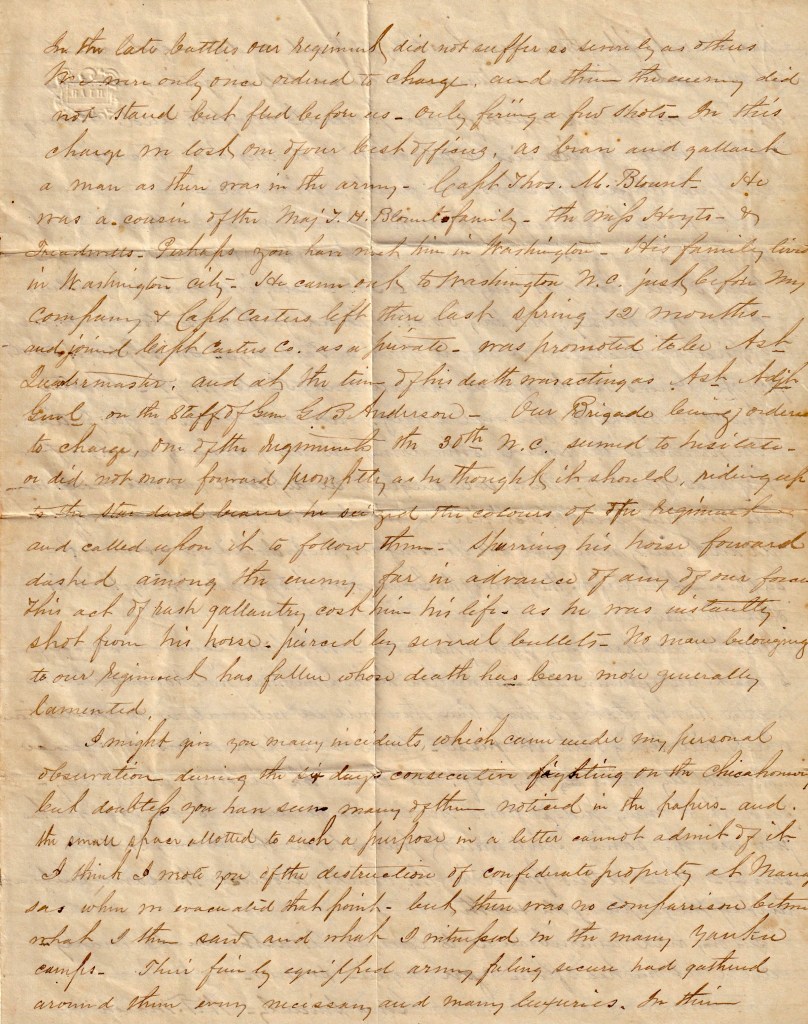 In the late battles our regiment did not suffer so severely as others
We were only once ordered to charge, and then the enemy did
not stand but fled before us - only firing a few shots - In this
charge we lost one of our best officers, as brave and gallant
a man as there was in the army - Capt Thos. M. Blount - He
was a cousin of the Maj T. H. Blount family - the Miss Hoyts - &
Treadwells - Perhaps you have met him in Washington - His family lives
in Washington city - He came out to Washington N.C. just before my
Company & Capt Carters left there last spring 12 months -
and joined Capt Carters Co. as a private - was promoted to be Ast
Quatermaster, and at the time of his death was acting as Ast Adjt
Genl on the Staff of Gen G B Anderson - Our Brigade being ordered
to charge, one of the regiments the 30th N.C. seemed to hesitate -
or did not move forward promptly as he thought it should, riding up
to the standard bearer he seized the colours of the regiment
and called upon it to follow them - Spurring his horse forward
dashed among the enemy far in advance of any of our forces
This act of rash gallantry cost him his life - as he was instantly
shot from his horse - pierced by several bullets - No man belonging
to our regiment has fallen whose death has been more generally
lamented.
I might give you many incidents, which came under my personal
observation during the days consecutive fighting on the Chicahominy
but doubtless you have seen many of them noticed in the papers - and
the small space allotted to such a purpose in a letter cannot admit of it -
I think I wrote you of the destruction of confederate property at Manas
sas when we evacuated that point - but there was no comparrison between
what I then saw and what I witnessed in the many Yankee
camps - Their finely equipped army feling secure had gathered
around them every necessary and many luxuries. In their